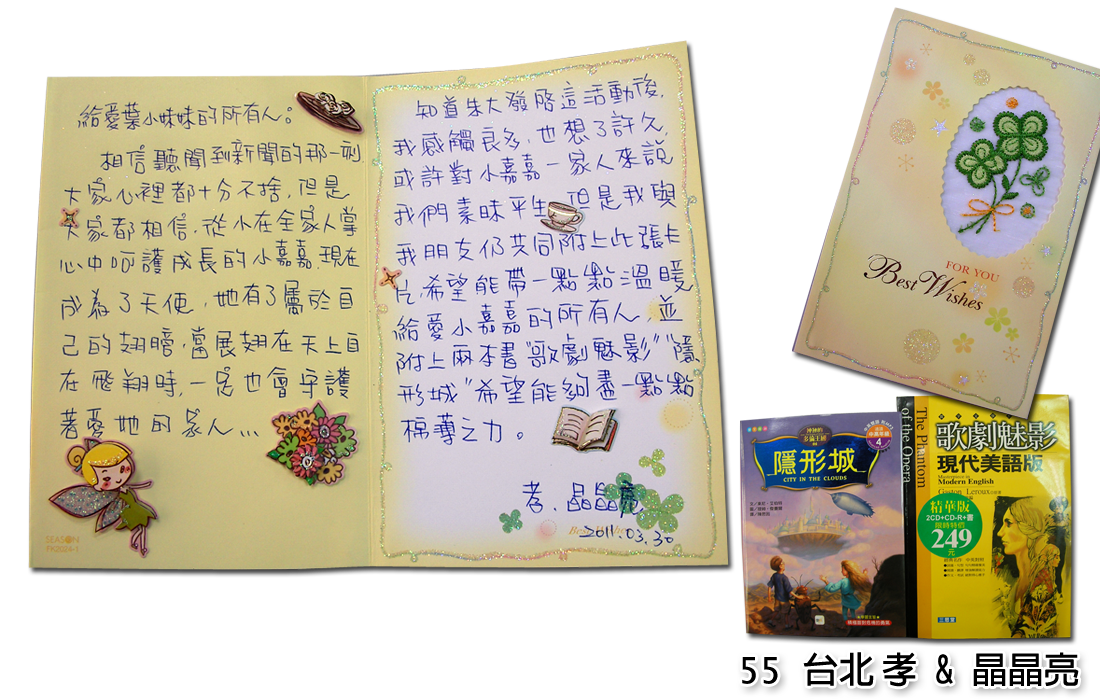 給愛葉小妹妹的所有人。
相信聽聞到新聞的那一刻,
大家心裡都十分不捨,但是
大家都相信,從小在全家人掌
心中呵護成長的小嘉嘉,現在
成為了天使,她有了屬於自
己的翅膀,當展翅在天上自
在飛翔時,一定也會守護
著愛她的家人...
SEASON
知道朱大發啓這活動後,
我感觸良多,也想了許久,
或許對小嘉嘉一家人來說
我們素昧平生,但是我與
我朋友仍共同附上此張卡
片,希望能帶一點點溫暖
給愛小嘉嘉的所有人,並
附上兩本書"歌劇魅影""隱
形城"希望能夠盡一點點
棉薄之力。
孝.晶晶亮
2011.03.30
FOR YOU
Best Wishes
4
隱形城
CITY IN THE CLOUDS
The Phantom
of the Opera
歌劇魅影
現代美語版
Modern English
Gaston Leroux
精華版
2CD+CD-R+書
限時特價
249
元
55 台北孝 & 晶晶亮